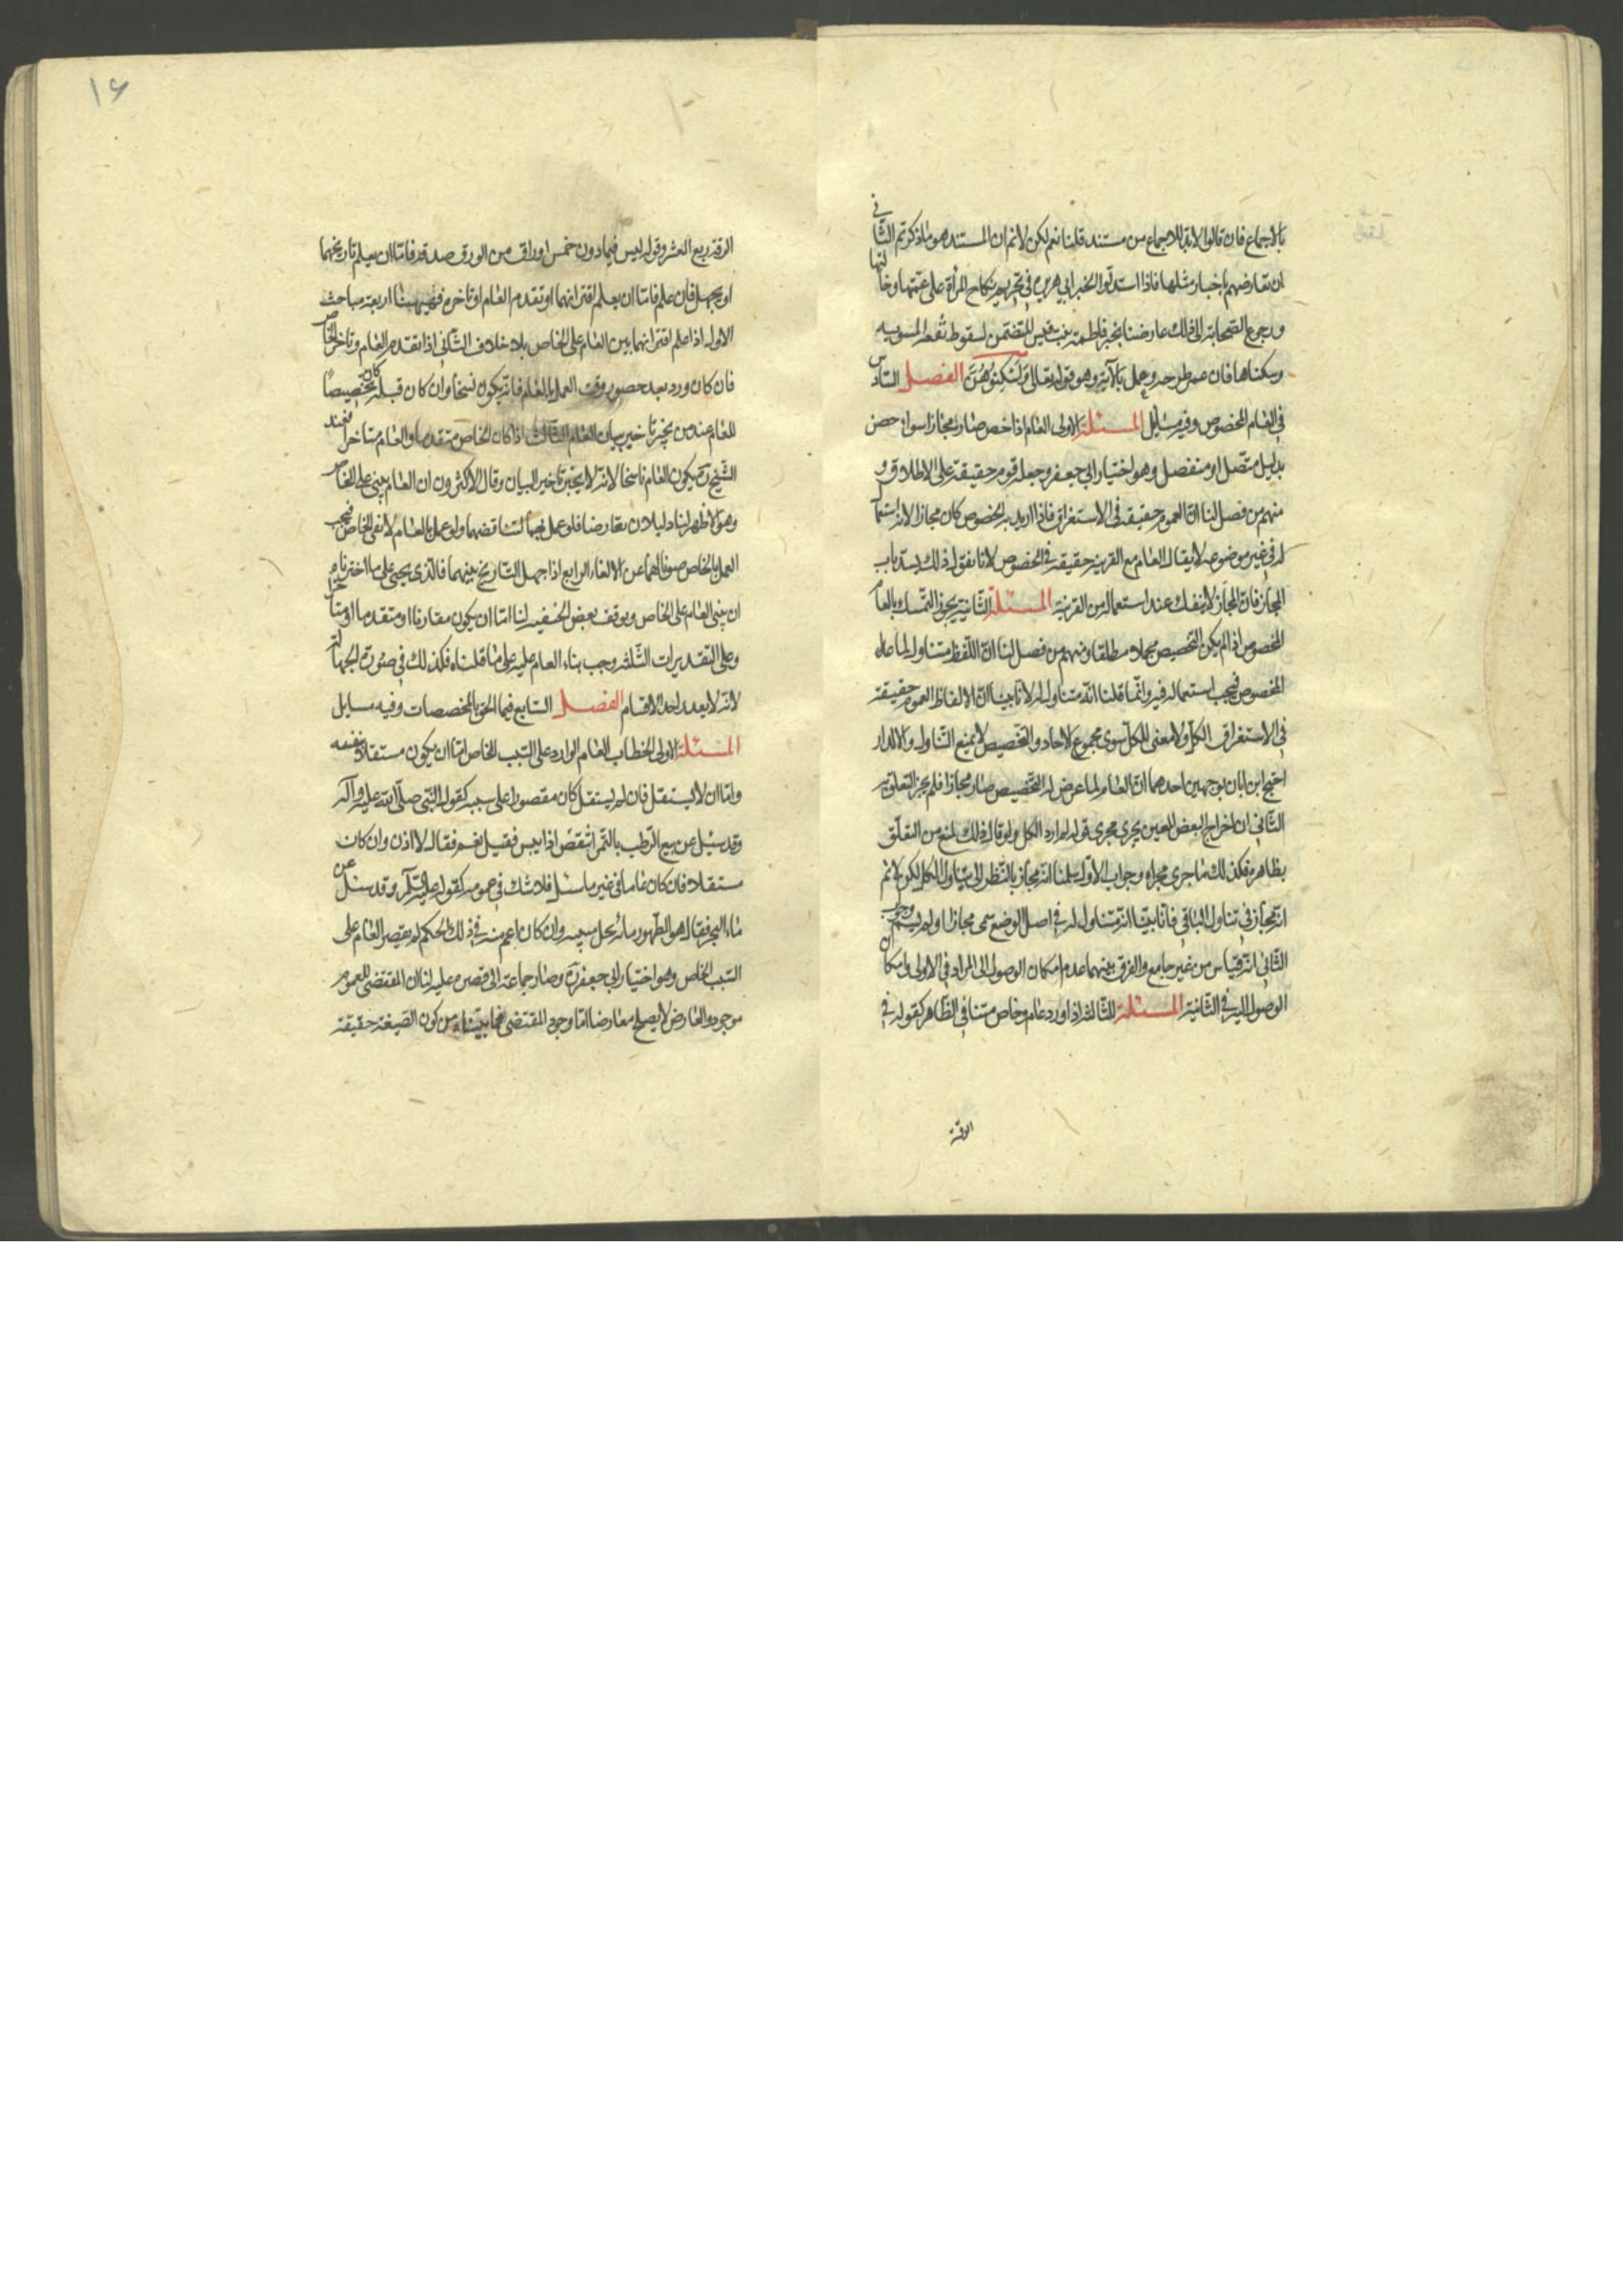 بالاجماع فان قالوا لابد للاجماع من مستند قلنا نعم لكن لانم ان المستند هو ما ذكرتم الثاني
ان نعارضهم باخبار مثلها فاذا استدلوا بخبر ابي هريرة في تحريم نكاح المرأة على عمتها وخالتها
ورجوع الصحابة الى ذلك عارضنا بخبر فاطمة بنت قيس المتضمن لسقوط نفقة
وسكناها فان عمر طرحه وعمل بالآية وهو قوله تعالى اسكنوهن الفصل السادس
في العام المخصوص وفيه مسايل المسئلة الاولى العام اذا خص صار مجازا سواء خص
بدليل متصل او منفصل وهو اختيار ابي جعفر وجعله قوم حقيقة على الاطلاق و
منهم من فصل لنا ان العموم حقيقة في الاستغراق فاذا اريد به الخصوص كان مجازا لانه استعما
له في غير موضوعه لا يقال العام مع القرينة حقيقة في الخصوص لانا نقول ذلك يسد باب
المجاز فان المجاز لا ينفك عند استعماله من القرينة المسئلة الثانية يجوز التمسك بالعام
المخصوص اذا لم يكن التخصيص مجملا مطلقا ومنهم من فصل لنا ان اللفظ متناول لما عدا
المخصوص فيجب استعماله فيه وانما قلنا انه متناول له لانا بينا ان الالفاظ العموم حقيقة
في الاستغراق الكل ولا معنى للكل سوى مجموع الاحاد والتخصيص لا يمنع التناول والا لدار
احتج ابن ابان بوجهين احدهما ان العام لما عرض له التخصيص صار مجازا فلم يجز التعلق به
الثاني ان اخراج البعض المعين يجري مجرى قوله لم ارد الكل ولو قال ذلك لمنع من التعلق
بظاهره فكذلك ما جرى مجراه وجواب الاول سلمنا انه مجاز بالنظر الى تناول الكل لكن لانم
انه مجاز في تناول الباقي فانا بينا انه متناول له في اصل الوضع سمى مجازا او لم يسم وجواب
الثاني انه قياس من غير جامع والفرق بينهما عدم امكان الوصول الى المراد في الاولى وامكان
الوصول اليه في الثانية المسئلة الثالثة اذا ورد عام وخاص متنافي الظاهر كقوله في
الرقة
١٦
الرقة ربع العشر وقوله ليس فيما دون خمس اوراق من الورق صدقة فاما ان يعلم تاريخهما
او يجهل فان علم فاما ان يعلم اقترانهما او تقدم العام او تاخره فهيهنا اربعة مباحث
الاول اذا علم اقترانهما بين العام على الخاص بلا خلاف الثاني اذا تقدم العام وتاخر الخاص
فان كان ورد بعد حضور وقت العمل بالعام فانه يكون نسخا وان كان قبله كان تخصيصا
للعام عند من يجيز تاخير بيان العام الثالث اذا كان الخاص متقدما والعام متاخرا فعند
الشيخ ره يكون العام ناسخا لانه لا يجيز تاخير البيان وقال الاكثرون ان العام يبنى على الخاص
وهو الاظهر لنا دليلان تعارضا فلو عمل بهما لتناقضهما ولو عمل بالعام لانفى الخاص فيجب
العمل بالخاص صونا لهما عن الالغاء الرابع اذا جهل التاريخ بينهما فالذي يجئ على ما اخترناه
ان يبنى العام على الخاص وتوقف بعض الحنفية لنا اما ان يكون مقارنا او متقدما او متاخرا
وعلى التقديرات الثلثة وجب بناء العام عليه على ما قلناه فكذلك في صورة الجهالة
لانه لا يعدو احد الاقسام الفصل السابع فيما الحق بالمخصصات وفيه مسايل
المسئلة الاولى الخطاب العام الوارد على السبب الخاص اما ان يكون مستقلا بنفسه
واما ان لا يستقل فان لم يستقل كان مقصورا على سببه كقول النبي صلى الله عليه وآله
وقد سئل عن بيع الرطب بالتمر اينقص اذا يبس فقيل نعم فقال لا اذن وان كان
مستقلا فان كان عاما في غير ما سئل فلا شك في عمومه كقوله عليه السلام وقد سئل عن
ماء البحر فقال هو الطهور ماؤه الحل ميتته وان كان اعم منه في ذلك الحكم لم يقصر العام على
السبب الخاص وهو اختيار ابي جعفر ره وصار جماعة الى قصره عليه لنا ان المقتضى للعموم
موجود والعارض لا يصلح معارضا اما وجود المقتضى فما بيناه من كون الصيغة حقيقة